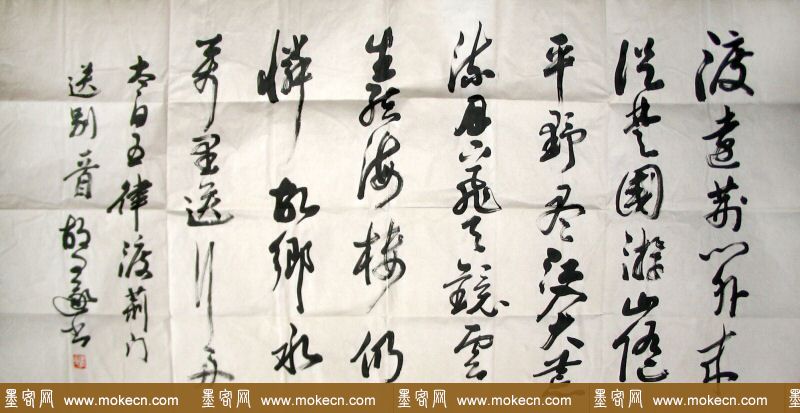 渡遠荊门外来
從楚國遊山隨
平野尽江入大荒
流月下飛天鏡雲
生結海楼仍
憐故鄉水
萬里送行舟
太白五律渡荊门
送别晋胡
墨客网 www.mokecn.com 墨客网 www.mokecn.com 墨客网 www.mokecn.com 墨客网 www.mokecn.com